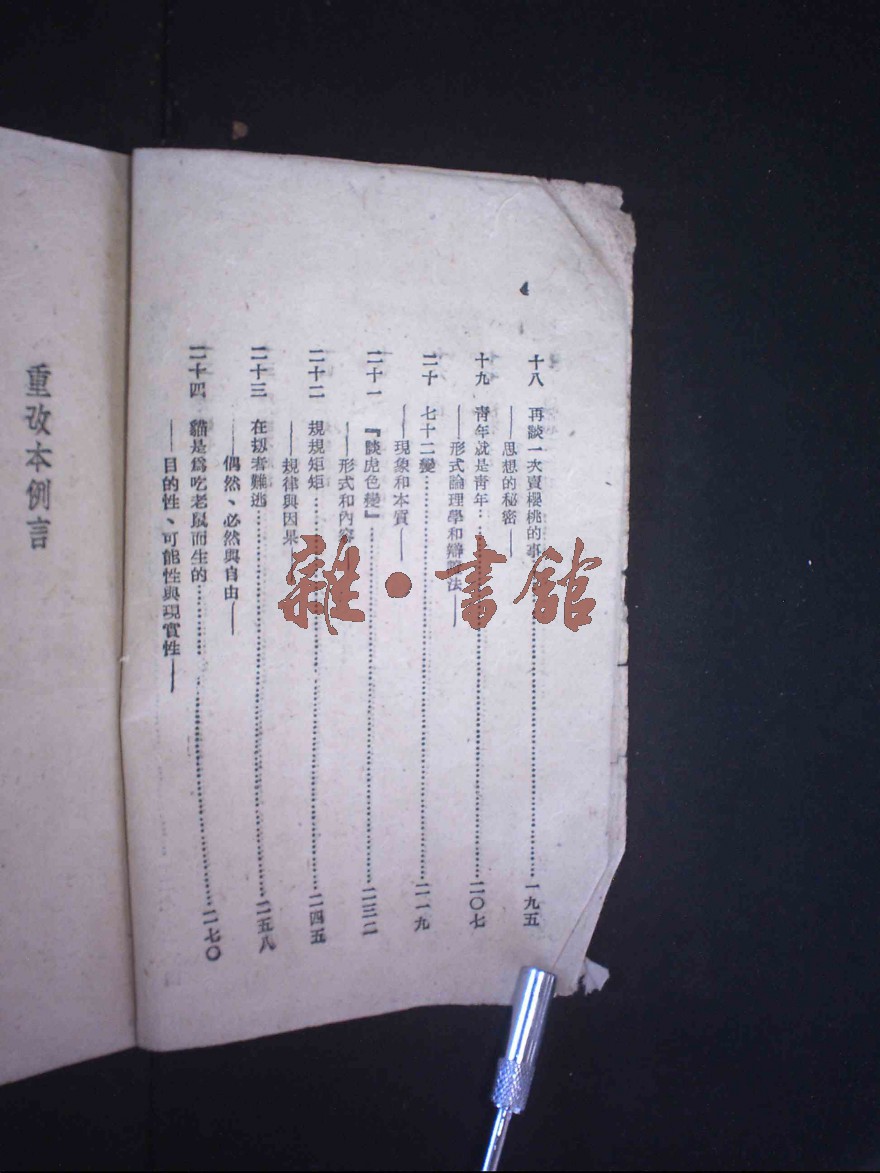 4
十八　再談一次賣櫻桃的事……一九五
——思想的秘密——
十九　青年就是青年……二〇七
——形式論理學和辯證法——
二十　七十二變……二一九
——現象和本質——
二十一　『談虎色變』……二三二
——形式和內容——
二十二　規規矩矩……二四五
——規律與因果——
二十三　在刼者難逃……二五八
——偶然、必然與自由——
二十四　貓是爲吃老鼠而生的……二七〇
——目的性、可能性與現實性——
重改本例言
雜·書館